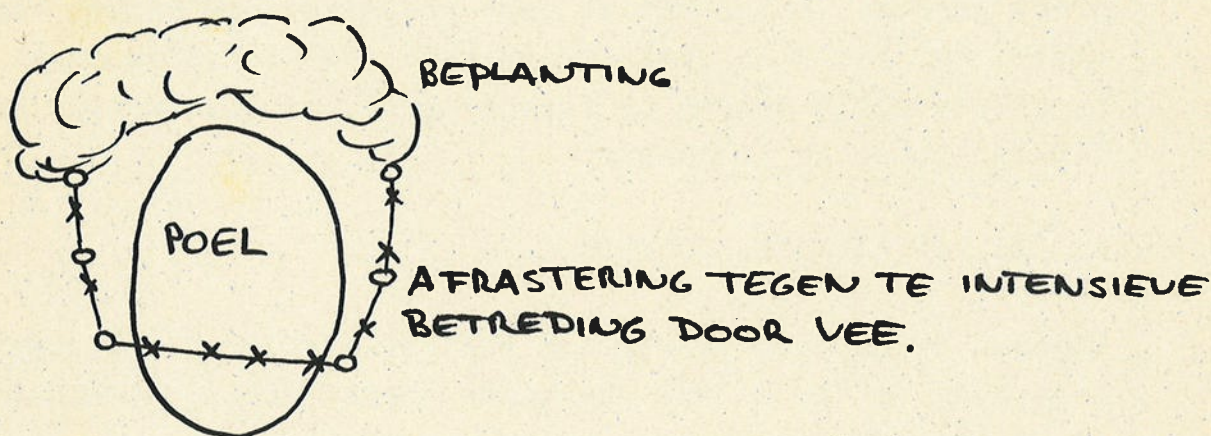 BEPLANTING
POEL
AFRASTERING TEGEN TE INTENSIEVE
BETREDING DOOR VEE.